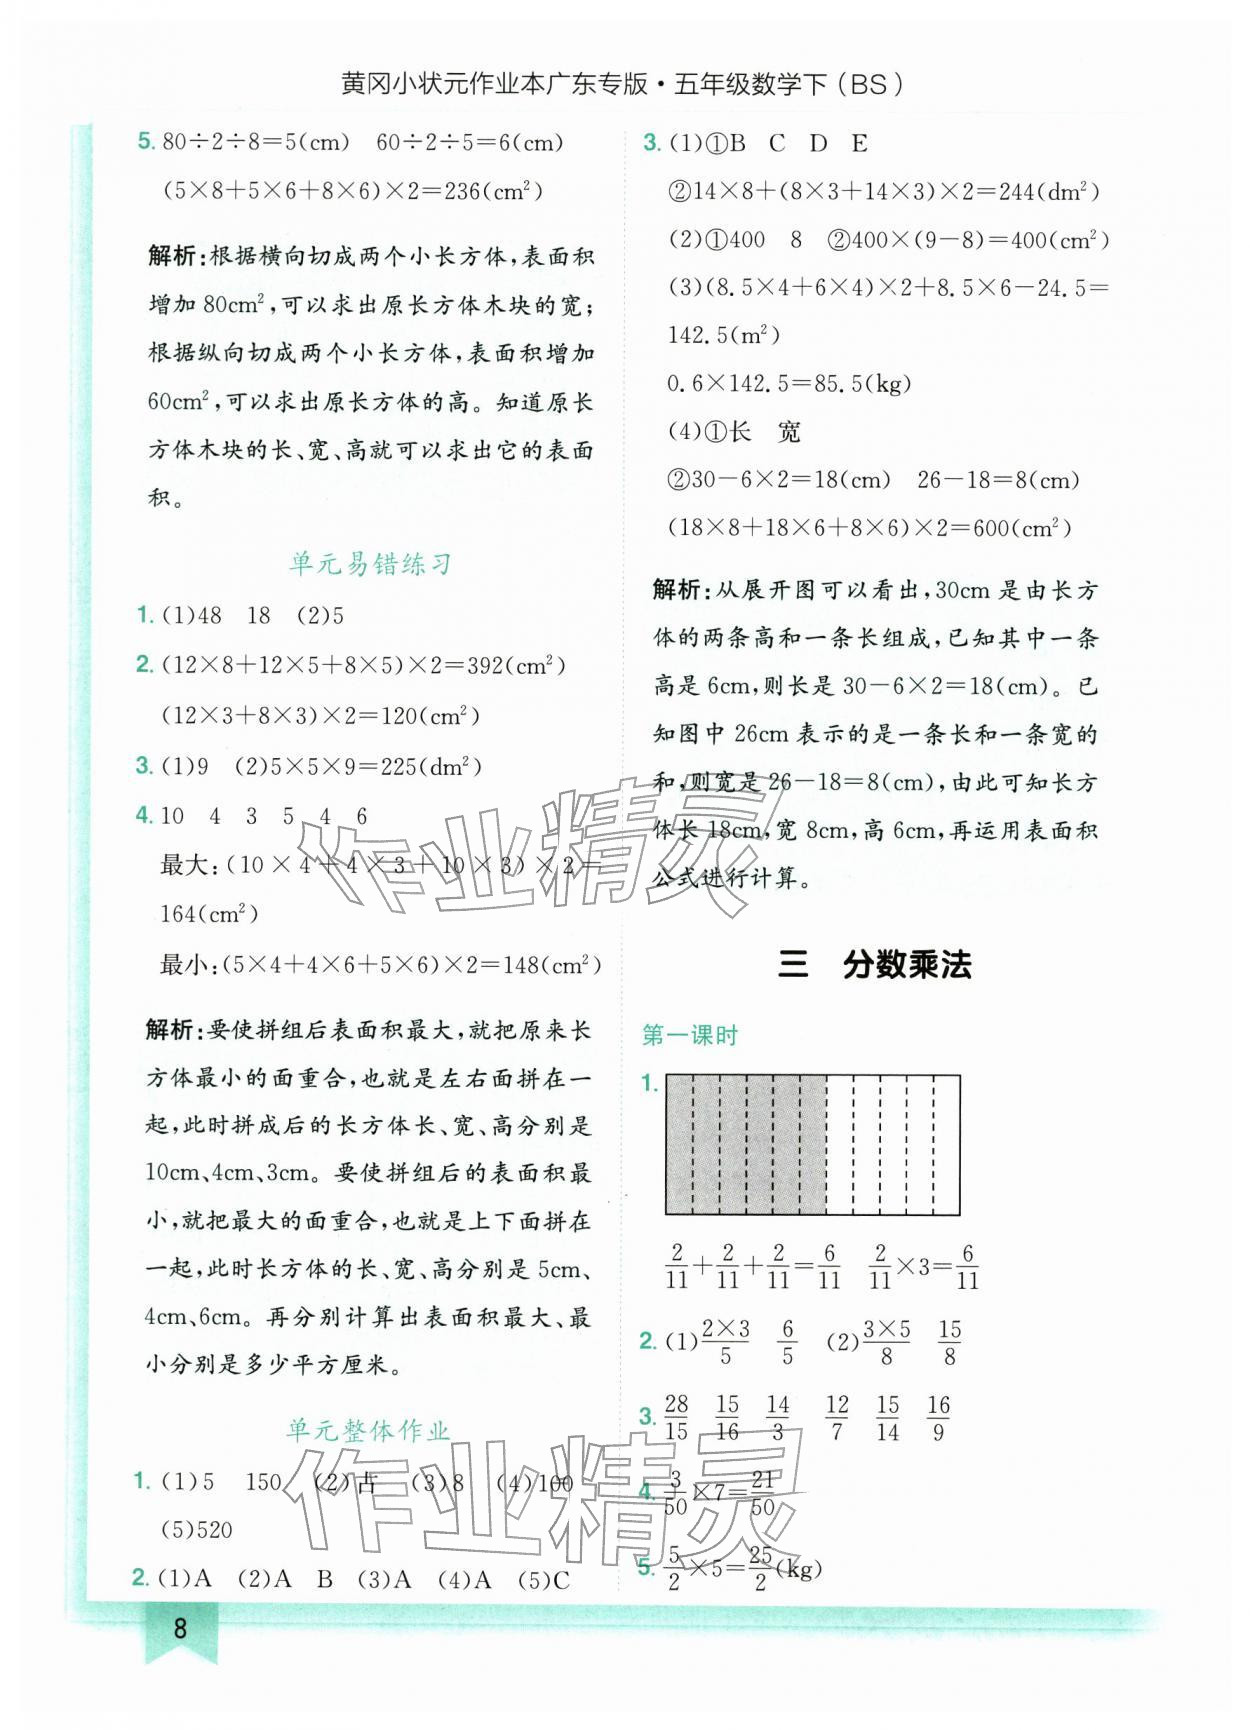 黄冈小状元作业本广东专版·五年级数学下(BS)
5. 80÷2÷8=5(cm) 60÷2÷5=6(cm)
(5×8+5×6+8×6)×2=236(cm²)
解析:根据横向切成两个小长方体,表面积
增加80cm²,可以求出原长方体木块的宽;
根据纵向切成两个小长方体,表面积增加
60cm²,可以求出原长方体的高。知道原长
方体木块的长、宽、高就可以求出它的表面
积。
单元易错练习
1. (1)48 18 (2)5
2. (12×8+12×5+8×5)×2=392(cm²)
(12×3+8×3)×2=120(cm²)
3. (1)9 (2)5×5×9=225(dm²)
4. 10 4 3 5 4 6
最大:(10×4+4×3+10×3)×2=
164(cm²)
最小:(5×4+4×6+5×6)×2=148(cm²)
解析:要使拼组后表面积最大,就把原来长
方体最小的面重合,也就是左右面拼在一
起,此时拼成后的长方体长、宽、高分别是
10cm、4cm、3cm。要使拼组后的表面积最
小,就把最大的面重合,也就是上下面拼在
一起,此时长方体的长、宽、高分别是5cm、
4cm、6cm。再分别计算出表面积最大、最
小分别是多少平方厘米。
单元整体作业
1. (1)5 150 (2)占 (3)8 (4)100
(5)520
2. (1)A (2)A B (3)A (4)A (5)C
3. (1)①B C D E
②14×8+(8×3+14×3)×2=244(dm²)
(2)①400 8 ②400×(9-8)=400(cm²)
(3)(8.5×4+6×4)×2+8.5×6-24.5=
142.5(m²)
0.6×142.5=85.5(kg)
(4)①长 宽
②30-6×2=18(cm) 26-18=8(cm)
(18×8+18×6+8×6)×2=600(cm²)
解析:从展开图可以看出,30cm是由长方
体的两条高和一条长组成,已知其中一条
高是6cm,则长是30-6×2=18(cm)。已
知图中26cm表示的是一条长和一条宽的
和,则宽是26-18=8(cm),由此可知长方
体长18cm,宽8cm,高6cm,再运用表面积
公式进行计算。
三 分数乘法
第一课时
1.
2/11+2/11+2/11=6/11 2/11×3=6/11
2. (1)2×3/5 6/5 (2)3×5/8 15/8
3. 28/15 15/16 14/3 12/7 15/14 16/9
4. 3/50×7=21/50
5. 5/2×5=25/2(kg)
8
作业精灵
作业精灵